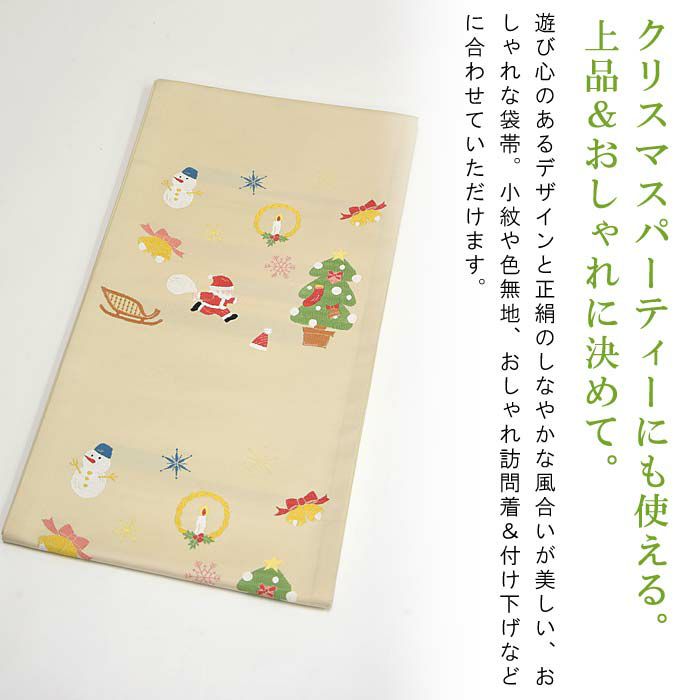 クリスマスパーティーにも使える。
上品&おしゃれに決めて。
遊び心のあるデザインと正絹のしなやかな風合いが美しい、お
しゃれな袋帯。小紋や色無地、おしゃれ訪問着&付け下げなど
に合わせていただけます。